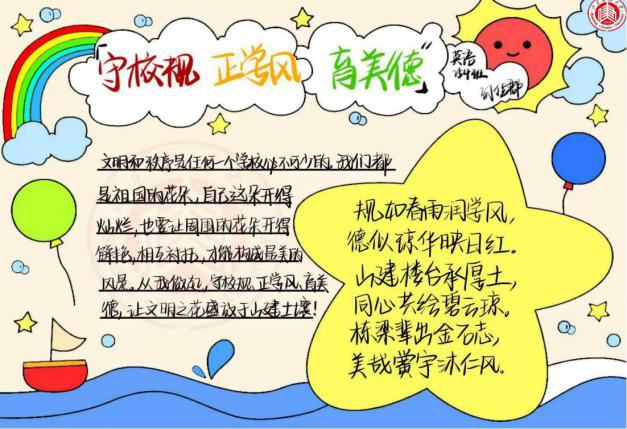 "守校规 正学风 育美德"
英语
文明和秩序是任何一个学校必不可少的。我们都
是祖国的花朵，自己这朵开得
灿烂，也要让周围的花朵开得
鲜艳，相互衬托，才能构成最美的
风景。从我做起，守校规，正学风，育美
德，让文明之花盛放于山建土壤！
规如春雨润学风，
德似琼华映日红。
山建楼台承厚土，
同心共绘碧云琼。
栋梁辈出金石志，
美哉黉宇沐仁风。